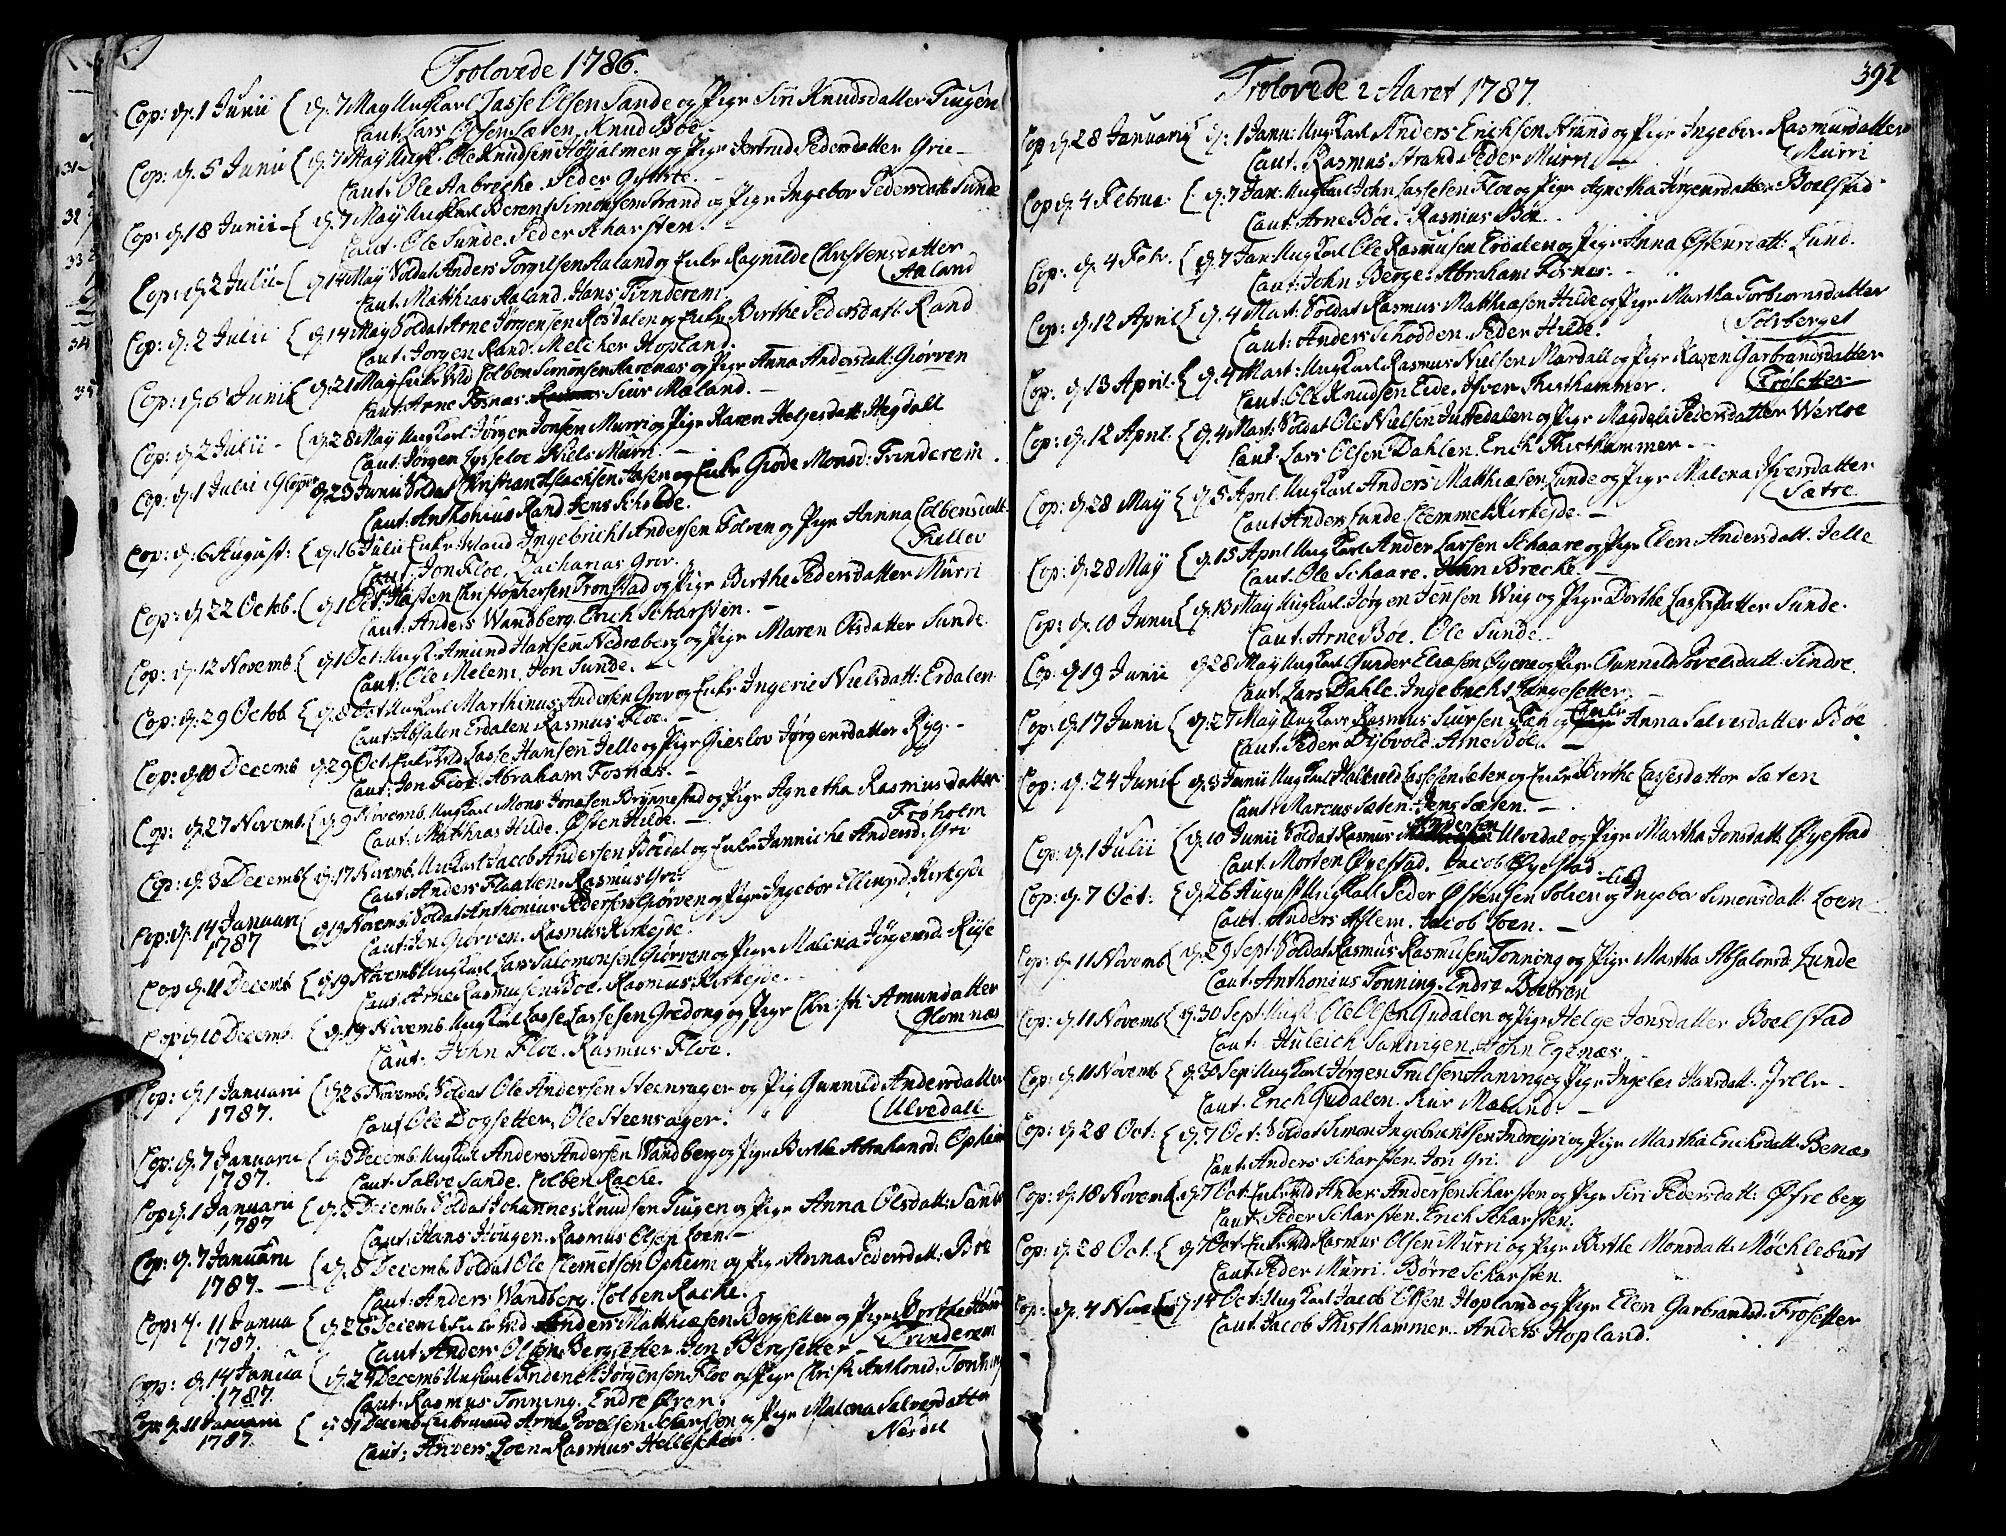 Trolovede 1786.
Cop: d. 1 Junii { d. 7 May Ungkarl Lasse Olsen Sande og Pige Siri Knudsdatter Tiugen
Caut: Lars Olsen Sæten, Knud Böe.
Cop: d. 5 Junii { d. 7 May Ungk. Ole Knudsen Hoyalmen og Pige Jertrud Pedersdatter Grie
Caut: Ole Aabrecke. Peder
Cop: d. 18 Junii { d. 7 May Ungkarl Berent Simonsen Strand og Pige Ingebor Pedersdatt: Sunde
Caut: Ole Sunde. Peder Scharsten.
Cop: d. 2 Julii { d. 14 May Soldat Anders Torgilsen Aaland og Enke Ragnilde Christensdatter
Aaland
Caut: Matthias Aaland. Hans Tvinderem.
Cop: d. 2 Julii { d. 14 May Soldat Arne Jörgensen Rosdalen og Enke Birthe Pedersdatt: Rand
Caut: Jörgen Rand. Melcher Hopland.
Cop: d. 6 Junii { d. 21 May Enke Md Colben Simonsen Aarenæs og Pige Anna Andersdatt: Giørven
Caut: Arne Fosnæs. Siur Mæland.
Cop: d. 2 Julii { d. 28 May Ungkarl Jørgen Jonsen Murri og Pige Karen Helgesdatt: Hegdall
Caut: Jørgen Lysseloe. Niels Murri.
Cop: d. 1 Julii i Gloppen d. 23 Junii Soldat Christian Isacksen Aasen og Enke Giøde Monsd: Tvinderem.
Caut: Anthonius Rand. Jens Scholde.
Cop: d. 6 August: { d. 16 Julii Enke Mand Ingebricht Andersen Folven og Pige Anna Colbensdatt:
Tiellev
Caut: Jon Floe, Zacharias Grov.
Cop: d. 22 Octob. { d. 1 Oct: Hosten Christophersen Tronstad og Pige Birthe Pedersdatter Murri
Caut: Anders Wandberg. Erich Scharsten.
Cop: d. 12 Novemb { d. 1 Oct: Ungk. Amund Hansen Nedreberg og Pige Maren Olsdatter Sunde.
Caut: Ole Melem. Jon Sunde.
Cop: d. 29 Octob { d. 8 Oct Ungkarl Marthinus Andersen Grov og Enke Ingerie Nielsdatt: Erdalen.
Caut: Absalon Erdalen. Rasmus Floe.
Cop: d. 10 Decemb d. 29 Oct Enke Md Lasse Hansen Jelle og Pige Gieslov Jørgensdatter Ryg.
Caut: Jon Floe. Abraham Fosnæs.
Cop: d. 27 Novemb. { d. 9 Novemb. Ungkarl Mons Jonasen Brynnestad og Pige Agnetha Rasmusdatter
Frøholm
Caut: Matthias Hilde. Østen Hilde.
Cop: d. 3 Decemb { d. 17 Novemb. Ungkarl Jacob Andersen Bödal og Enke Jannicke Andersd. Gri
Caut: Anders Flaatten. Rasmus Gri.
Cop: d. 14 Januari { d. 19 Novemb. Soldat Anthonius Pedersen Giørven og Pige Ingebor Ellingsd. Kirkejde
1787
Caut: Jon Giørven. Rasmus Kirkejde.
Cop d. 11 Decemb { d. 19 Novemb Ungkarl Lars Salomonsen Giørven og Pige Malena Jørgensd. Riise
Caut: Arne Rasmusen Böe. Rasmus Kirkejde.
Cop d. 10 Decemb. { d. 19 Novemb. Ungkarl Lasse Lassesen Gredong og Pige Christi Amundatter
Glomnæs
Caut: John Floe. Rasmus Floe.
Cop: d. 1 Januarii { d. 26 Novemb. Soldat Ole Andersen Steensager og Pig Gunnild Andersdatter
1787.
Ulvedall
Caut Ole Dogsetter, Ole Steensager.
Cop: d. 7 Januarii { d. 3 Decemb. Ungkarl Anders Andersen Wandberg og Pige Birthe Abrahamsd: Opheim
1787.
Caut: Salve Sande. Colben Rache.
Cop d. 1 Januarii { d. 3 Decemb. Soldat Johannes Knudsen Tiugen og Pige Anna Olsdatt: Sande
1787
Caut: Hans Hougen. Rasmus Olsen Loen.
Cop: d. 7 Januarii { d. 8 Decemb. Soldat Ole Clemetsen Opheim og Pige Anna Pedersdatt: Böe
1787.
Caut: Anders Wandberg. Colben Rache.
Cop: d. 11 Janua { d. 26 Decemb. Enke Md Anders Matthiæsen Bergsetter og Pige Dorthe
1787.
Tvinderem
Caut Anders Olsen Bergsetter. Jon Bergsetter
Cop: d. 14 Janua { d. 29 Decemb Ungkarl Fridenick Jørgensen Floe og Pige Christi Anthonid. Tonning
1787.
Caut: Rasmus Tonning. Endre Øren.
Cop: d. 11 Januarii { d. 31 Decemb Enkemand Arne Povelsen Scharsten og Pige Malena Salvesdatter
1787.
Nesdel
Caut: Anders Loen. Rasmus Hellesether
391
Trolovede i Aaret 1787.
Cop d. 28 Januarij { d. 1 Janu. Ungkarl Anders Erichsen Strand og Pige Ingebor Rasmusdatter
Murri
Caut: Rasmus Strand. Peder Murri.
Cop d. 4 Februa. { d. 7 Jan. Ungkarl John Lassesen Floe og Pige Agnetha Jørgensdatter Boelstad
Caut: Arne Böe. Rasmus Böe.
Cop: d. 4 Febr. { d. 7 Jan. Ungkarl Ole Rasmusen Erdalen og Pige Anna Østensdatt: Lund.
Caut: John Berge. Abraham Fosnæs.
Cop: d. 12 April { d. 4 Mart. Soldat Rasmus Matthiæsen Hilde og Pige Martha Torbiornsdatter
Solvberget
Caut: Anders Schodden. Peder Hilde.
Cop: d. 13 April. { d. 4 Mart: Ungkarl Rasmus Nielsen Mardall og Pige Karen Garbrandsdatter
Frøsetter
Caut: Ole Knudsen Eide. Iver Thisthammer.
Cop: d. 12 April. { d. 4 Mart: Soldat Ole Nielsen Justedalen og Pige Magdeli Pedersdatter Werløe
Caut: Lars Olsen Dahlen. Erich Thisthammer.
Cop: d. 28 May { d. 5 April. Ungkarl Anders Matthiæsen Lunde og Pige Malena Iversdatter
Sætre
Caut Anders Lunde. Clemmet Kirkejde.
Cop: d. 28 May { d. 15 April Ungkarl Ander Larsen Schaare og Pige Elen Andersdatt: Jelle
Caut: Ole Schaare. John Brecke.
Cop: d. 10 Junii { d. 13 May Ungkarl Jørgen Jensen Wiig og Pige Dorthe Lassesdatter Sunde.
Caut: Arne Böe. Ole Sunde.
Cop: d. 19 Junii d. 28 May Ungkarl Gunder Eliæsen Øyene og Pige Gunneld Povelsdatt: Sindre
Caut: Lars Dahle. Ingebricht Langesetter.
Cop: d. 17 Junii { d. 27 May Ungkarl Rasmus Siursen og Enke Anna Salvesdatter Böe
Caut: Peder Dybvold. Arne Böe.
Cop: d. 24 Junii { d. 3 Junii Ungkarl Halvold Lassesen Sæten og Enke Birthe Lassesdatter Sæten
Caut: Marcus Sæten. Jens Sæten.
Cop: d. 1 Julii { d. 10 Junii Soldat Rasmus Andersen Ulvedal og Pige Martha Jonsdatt: Øyestad
Caut: Morten Øyestad. Jacob Øyestad.
Cop: d. 7 Oct: { d. 26 August Ungkarl Peder Østensen Solsen og Ingebor Simonsdatt: Loen
Caut: Anders Aslem. Jacob Loen.
Cop: d. 11 Novemb { d. 29 Sept. Soldat Rasmus Rasmusen Tonning og Pige Martha Absalonsd. Lunde
Caut: Anthonius Tonning. Endre Bødven
Cop: d. 11 Novemb { d. 30 Sept. Ungk. Ole Olsen Gudalen og Pige Helge Jonsdatter Boelstad
Caut: Huleich Sannigen. John Egenæs.
Cop: d. 11 Novemb { d. 30 Sep. Ungkarl Jørgen Trulsen Haning og Pige Ingeler Hansdatt. Jelle
Caut: Erich Gudalen. Siur Mæland.
Cop: d. 28 Oct: { d. 7 Oct: Soldat Simon Ingebrichtsen Indreeyri og Pige Martha Erichsdatt: Bennæs
Caut: Anders Scharsten. Jon Gri.
Cop: d. 18 Novemb { d. 7 Oct: Enke Md Anders Andersen Scharsten og Pige Siri Pedersdatt: Øfreberg
Caut: Peder Scharsten. Erich Scharsten.
Cop: d. 28 Oct. { d. 7 Oct. Enke Md Rasmus Olsen Murri og Pige Birthe Monsdatt: Møchlebust
Caut: Peder Murri. Børre Scharsten.
Cop: d. 4 Nov { d. 14 Oct: Ungkarl Jacob Olsen Hopland og Pige Elen Garbrandsd: Frøsetter
Caut: Jacob Thisthammer. Anders Hopland.